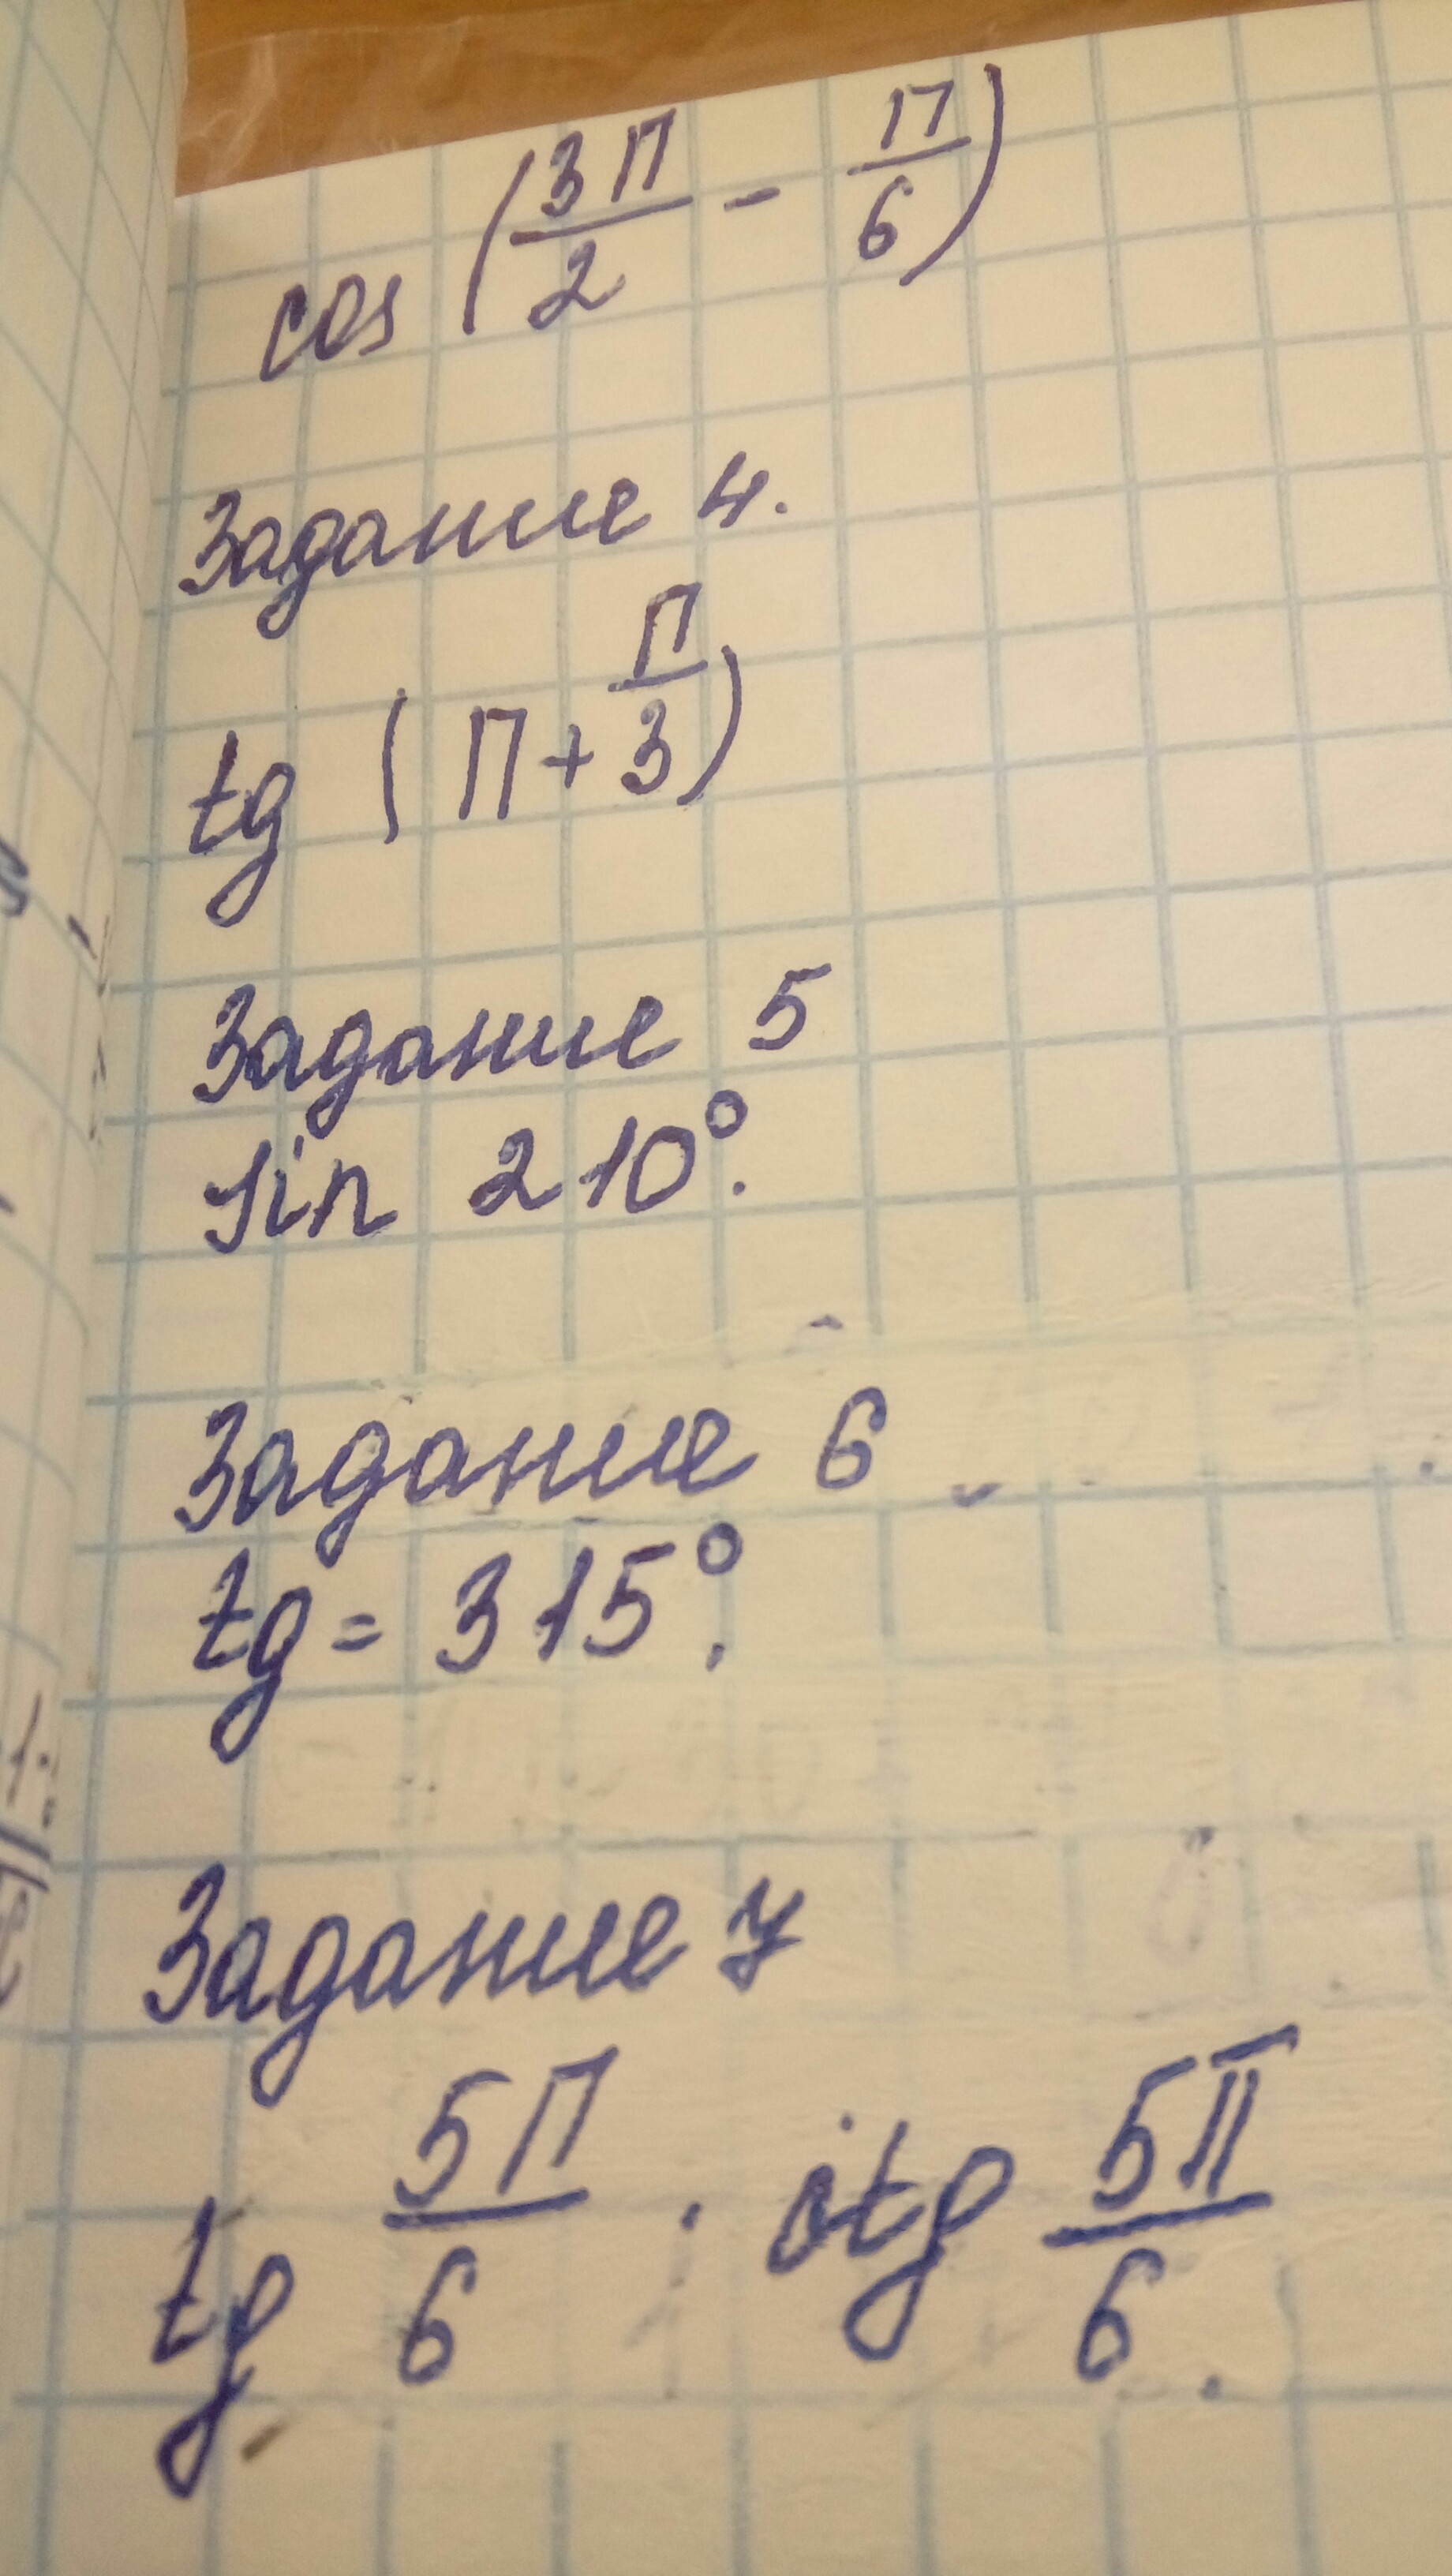 cos (3П/2 - П/6)
Задание 4.
tg (П + П/3)
Задание 5
sin 210°.
Задание 6
tg = 315°.
Задание 7
tg 5П/6 · ctg 5П/6.